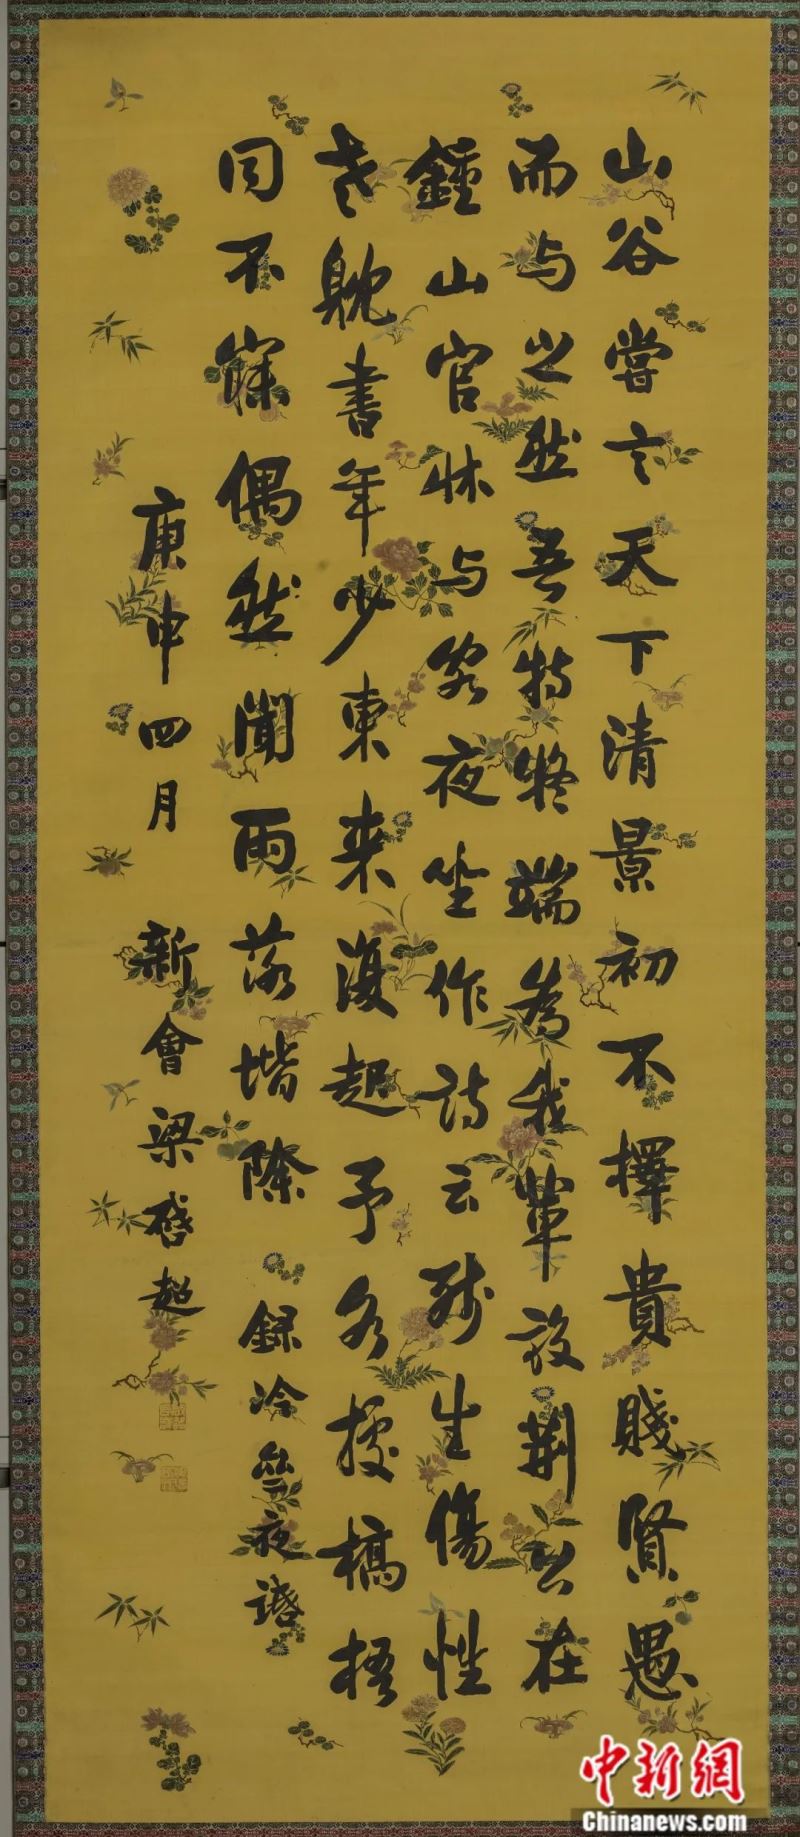 山谷嘗言天下清景初不擇貴賤賢愚
而与之然吾特疑端為我輩設荆公在
鍾山官牀与客夜坐作詩云殘生傷性
老躭書年少東来復起予各據槁梧
同不寐偶然聞雨落堦除 録冷齋夜話
庚申四月 新會梁啓超
中新網
Chinanews.com